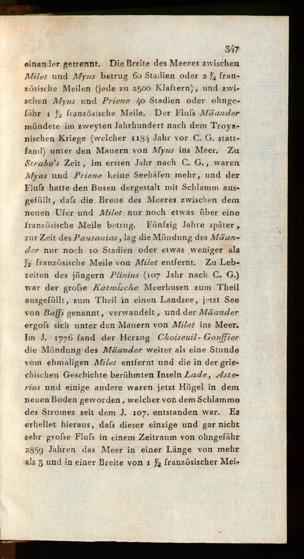 347
einander getrennt. Die Breite des Meeres zwischen
Milet und Myus betrug 60 Stadien oder 2 ¼ fran-
zösische Meilen (jede zu 2500 Klaftern), und zwi-
schen Myus und Priene 40 Stadien oder ohnge-
fähr 1 ½ französische Meile. Der Fluſs Mäander
mündete im zweyten Jahrhundert nach dem Troya-
nischen Kriege (welcher 1184 Jahr vor C. G. statt-
fand) unter den Mauern von Myus ins Meer. Zu
Strabo's Zeit, im ersten Jahr nach C. G., waren
Myus und Priene keine Seehäfen mehr, und der
Fluſs hatte den Busen dergestalt mit Schlamm aus-
gefüllt, daſs die Breite des Meeres zwischen dem
neuen Ufer und Milet nur noch etwas über eine
französische Meile betrug. Fünfzig Jahre später,
zur Zeit des Pausanias, lag die Mündung des Mäan-
der nur noch 10 Stadien oder etwas weniger als
½ französische Meile von Milet entfernt. Zu Leb-
zeiten des jüngern Plinius (107 Jahr nach C. G.)
war der groſse Katmische Meerbusen zum Theil
ausgefüllt, zum Theil in einen Landsee, jetzt See
von Baffi genannt, verwandelt, und der Mäander
ergoſs sich unter den Mauern von Milet ins Meer.
Im J. 1776 fand der Herzog Choiseuil-Gouffier
die Mündung des Mäander weiter als eine Stunde
vom ehmaligen Milet entfernt und die in der grie-
chischen Geschichte berühmten Inseln Lade, Aste-
rius und einige andere waren jetzt Hügel in dem
neuen Boden geworden, welcher von dem Schlamme
des Stromes seit dem J. 107. entstanden war. Es
erhellet hieraus, daſs dieser einzige und gar nicht
sehr groſse Fluſs in einem Zeitraum von ohngefähr
2859 Jahren das Meer in einer Länge von mehr
als 3 und in einer Breite von 1 ½ französischer Mei-